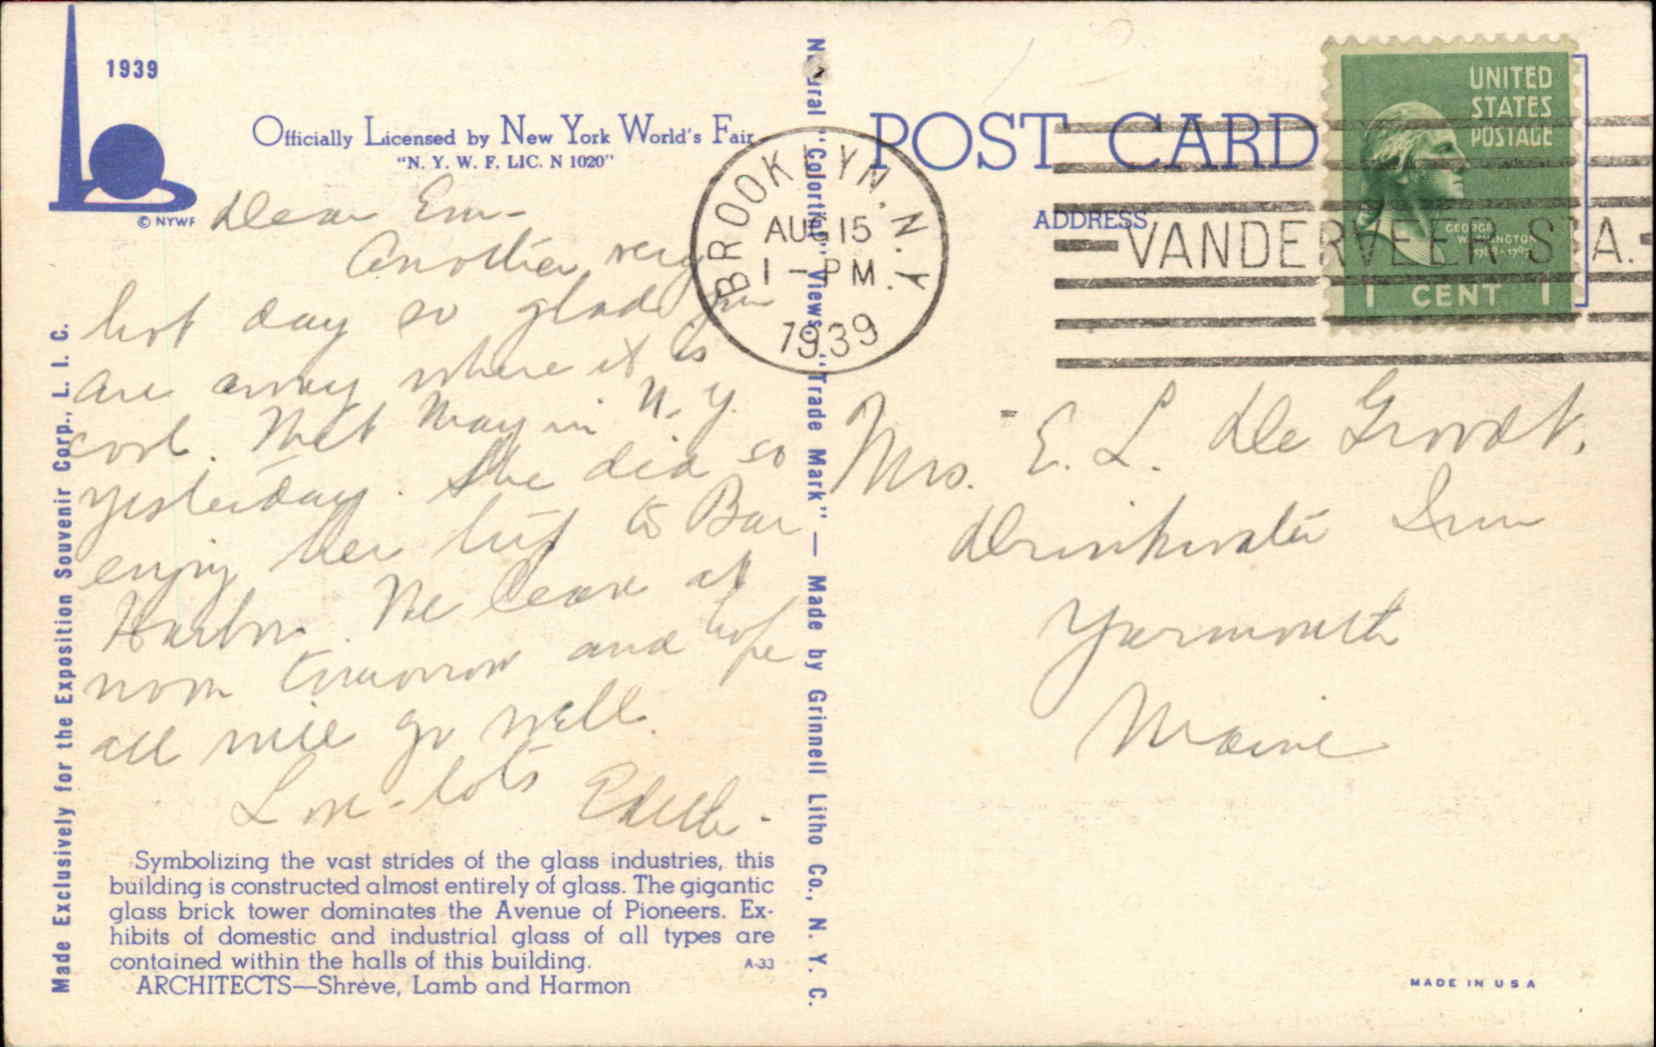 1939
© NYWF
Officially Licensed by New York World's Fair
"N. Y. W. F. LIC. N 1020"
Dear Em-
Another very
hot day so glad you
are away where it is
cool. Met May in N. Y.
yesterday. She did so
enjoy her trip to Bar
Harbor. We leave at
noon tomorrow and hope
all will go well.
Love - lots Edith-
Symbolizing the vast strides of the glass industries, this
building is constructed almost entirely of glass. The gigantic
glass brick tower dominates the Avenue of Pioneers. Ex-
hibits of domestic and industrial glass of all types are
contained within the halls of this building. A-33
ARCHITECTS—Shreve, Lamb and Harmon
Made Exclusively for the Exposition Souvenir Corp., L. I. C.
Natural "Colortint" Views "Trade Mark" — Made by Grinnell Litho Co., N. Y. C.
POST CARD
ADDRESS
BROOKLYN, N.Y.
AUG 15
1 - PM
1939
VANDERVEER STA.
UNITED
STATES
POSTAGE
GEORGE
WASHINGTON
1 CENT 1
Mrs. E. L. De Groodt.
Drinkwater Inn
Yarmouth
Maine
MADE IN USA